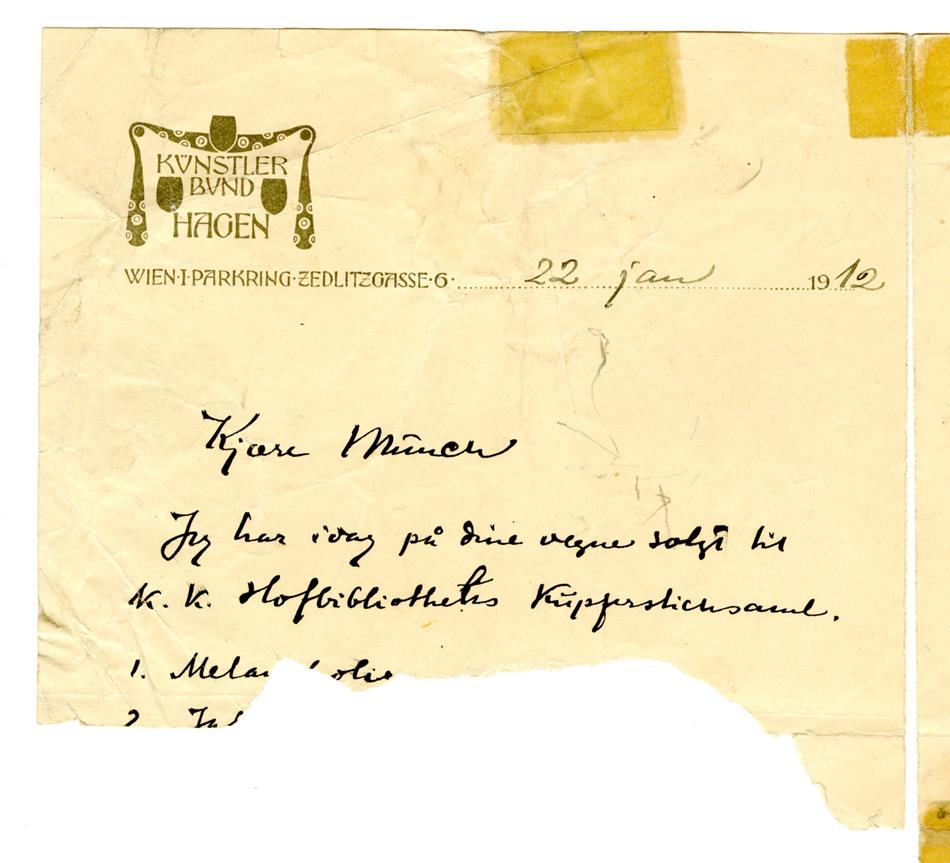 KÜNSTLER
BVND
HAGEN
WIEN·I·PARKRING·ZEDLITZGASSE·6· 22 jan 1912
Kjære Münch
Jeg har idag på dine vegne solgt til
K. K. Hofbibliotheks Kupferstichsaml.
1. Melan olie
2.